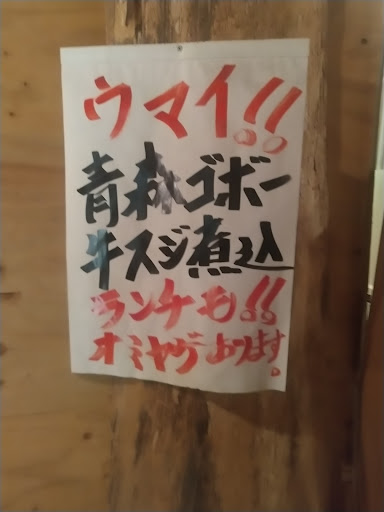 ウマイ!!
青森ゴボー
牛スジ煮込
ランチも!!
オミヤゲあります。